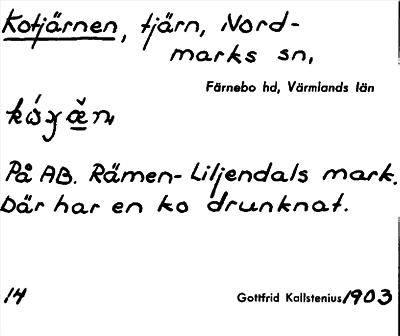 Kotjärnen, tjärn, Nord-
marks sn,
Färnebo hd, Värmlands län
På AB. Rämen-Liljendals mark.
Där har en ko drunknat.
14 Gottfrid Kallstenius 1903